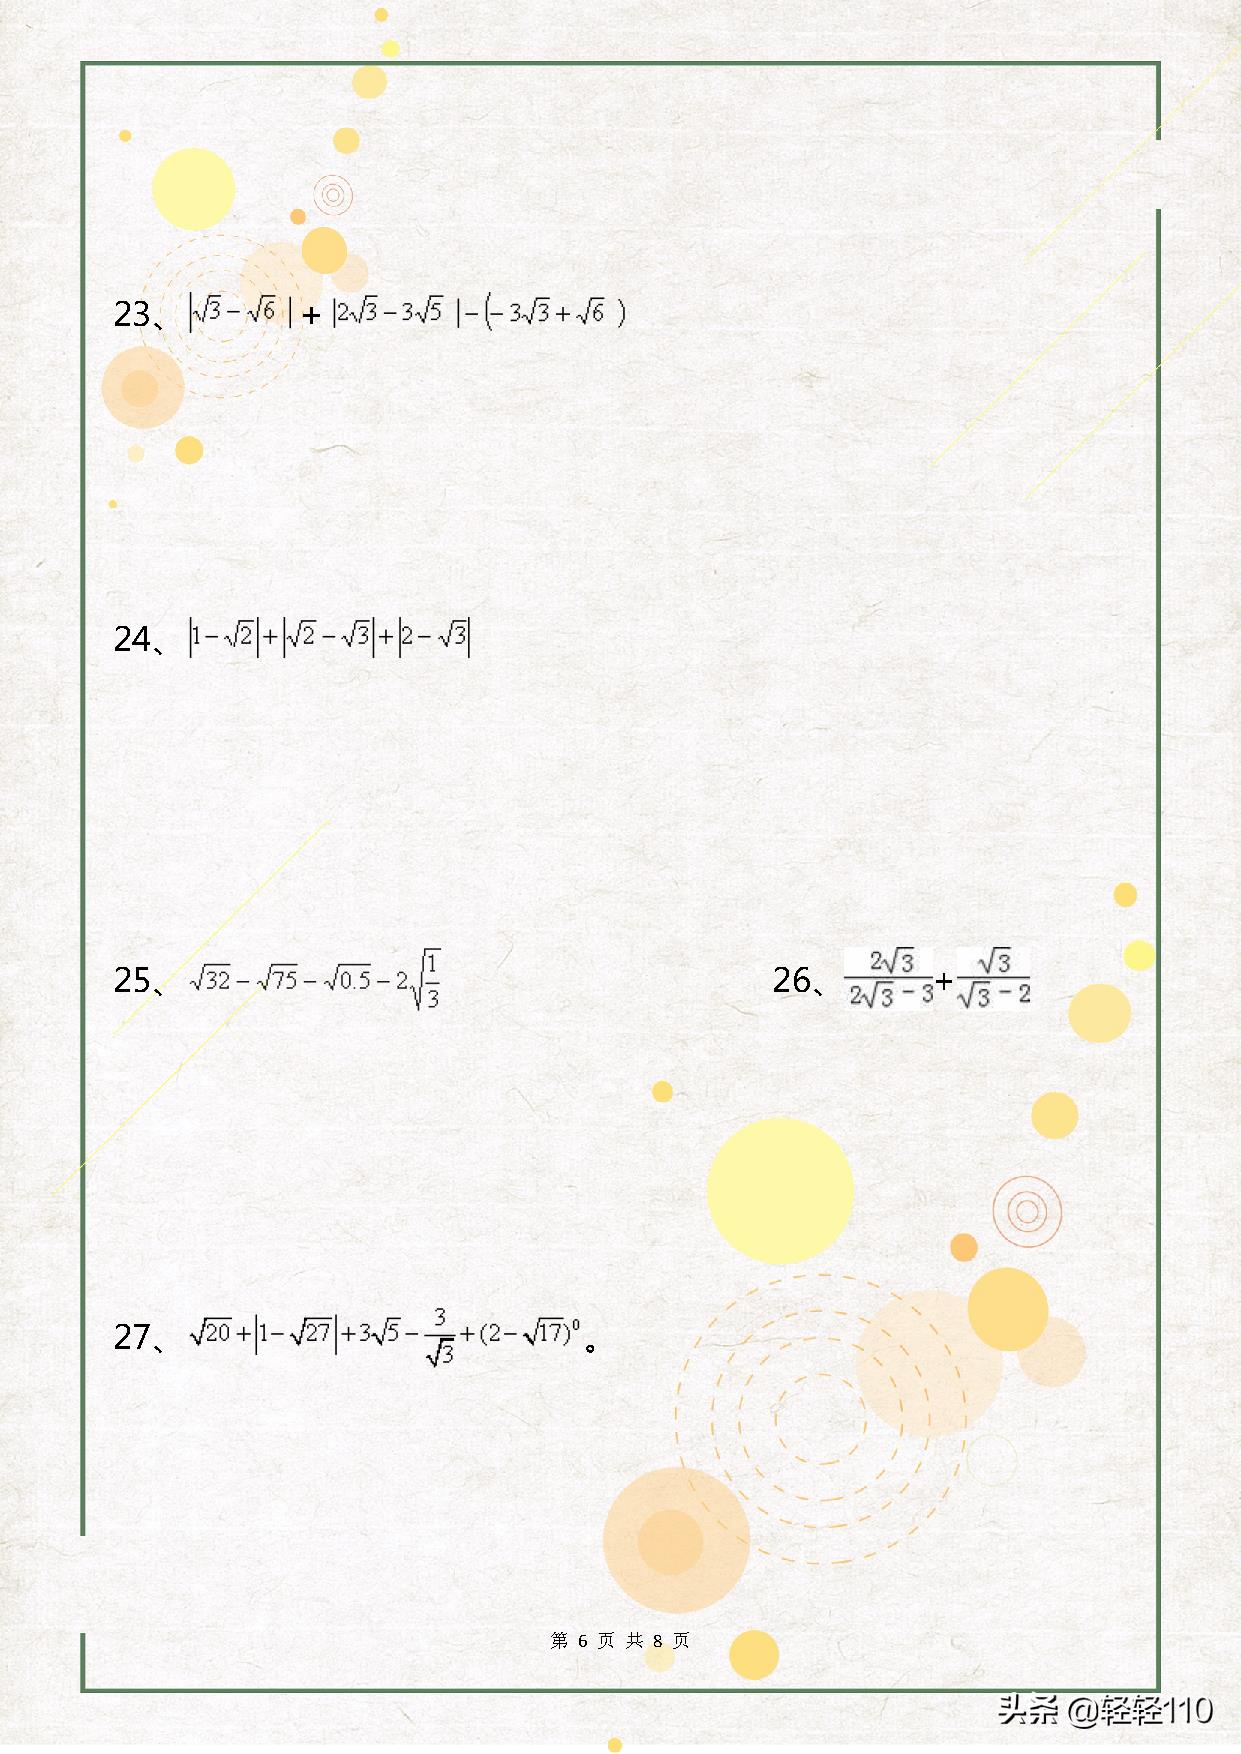 23、|√3−√6 |+|2√3−3√5 |−(−3√3+√6 )
24、|1−√2|+|√2−√3|+|2−√3|
25、√32−√75−√0.5−2√(1/3)
26、2√3/(2√3−3)+√3/(√3−2)
27、√20+|1−√27|+3√5−3/√3+(2−√17)⁰。
第 6 页 共 8 页
头条 @轻轻110